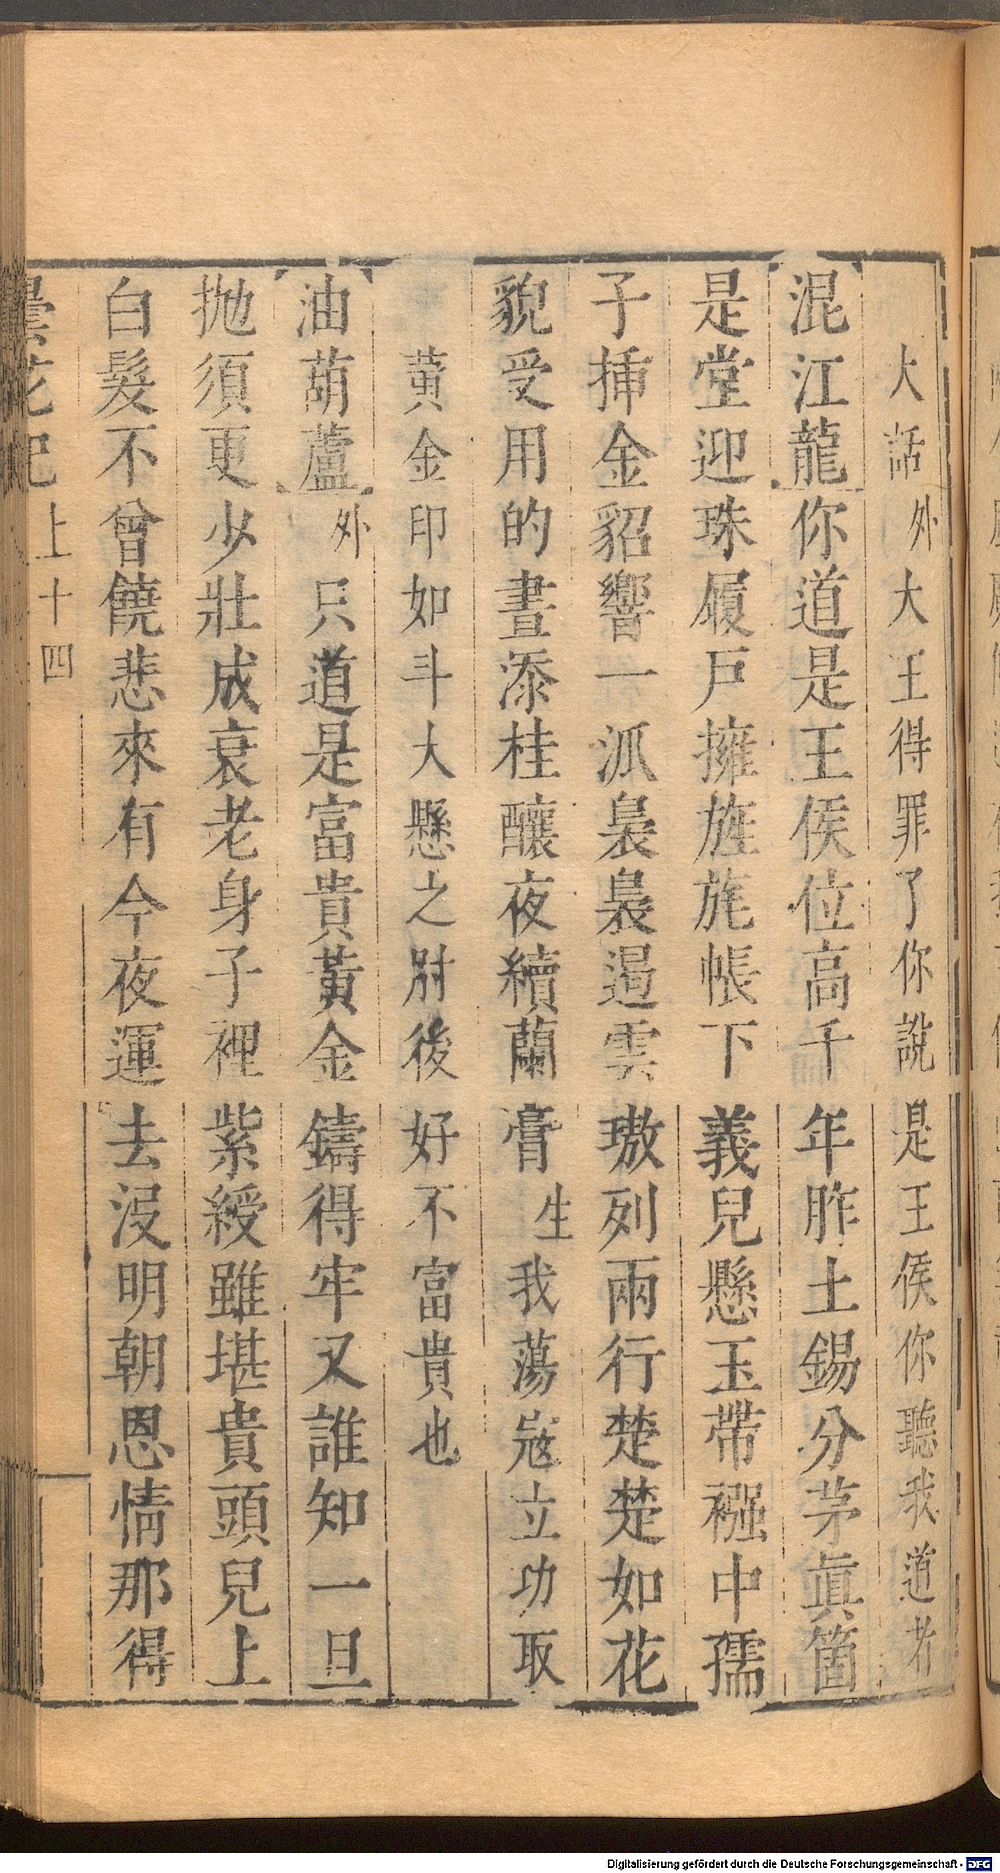 大話外大王得罪了你說是王侯你聽我道者
混江龍你道是王侯位高千年胙土錫分茅眞箇
是堂迎珠履戸擁旌旄帳下義兒懸玉帶襁中孺
子揷金貂響一派裊裊遏雲璈列兩行楚楚如花
貌受用的晝添桂釀夜續蘭膏生我蕩寇立功取
黄金印如斗大懸之肘後好不富貴也
油葫蘆外只道是富貴黃金鑄得牢又誰知一旦
抛須更少壯成衰老身子裡紫綬雖堪貴頭兒上
白髮不曾饒悲來有今夜運去沒明朝恩情那得
曇花記上十四
Digitalisierung gefördert durch die Deutsche Forschungsgemeinschaft - DFG